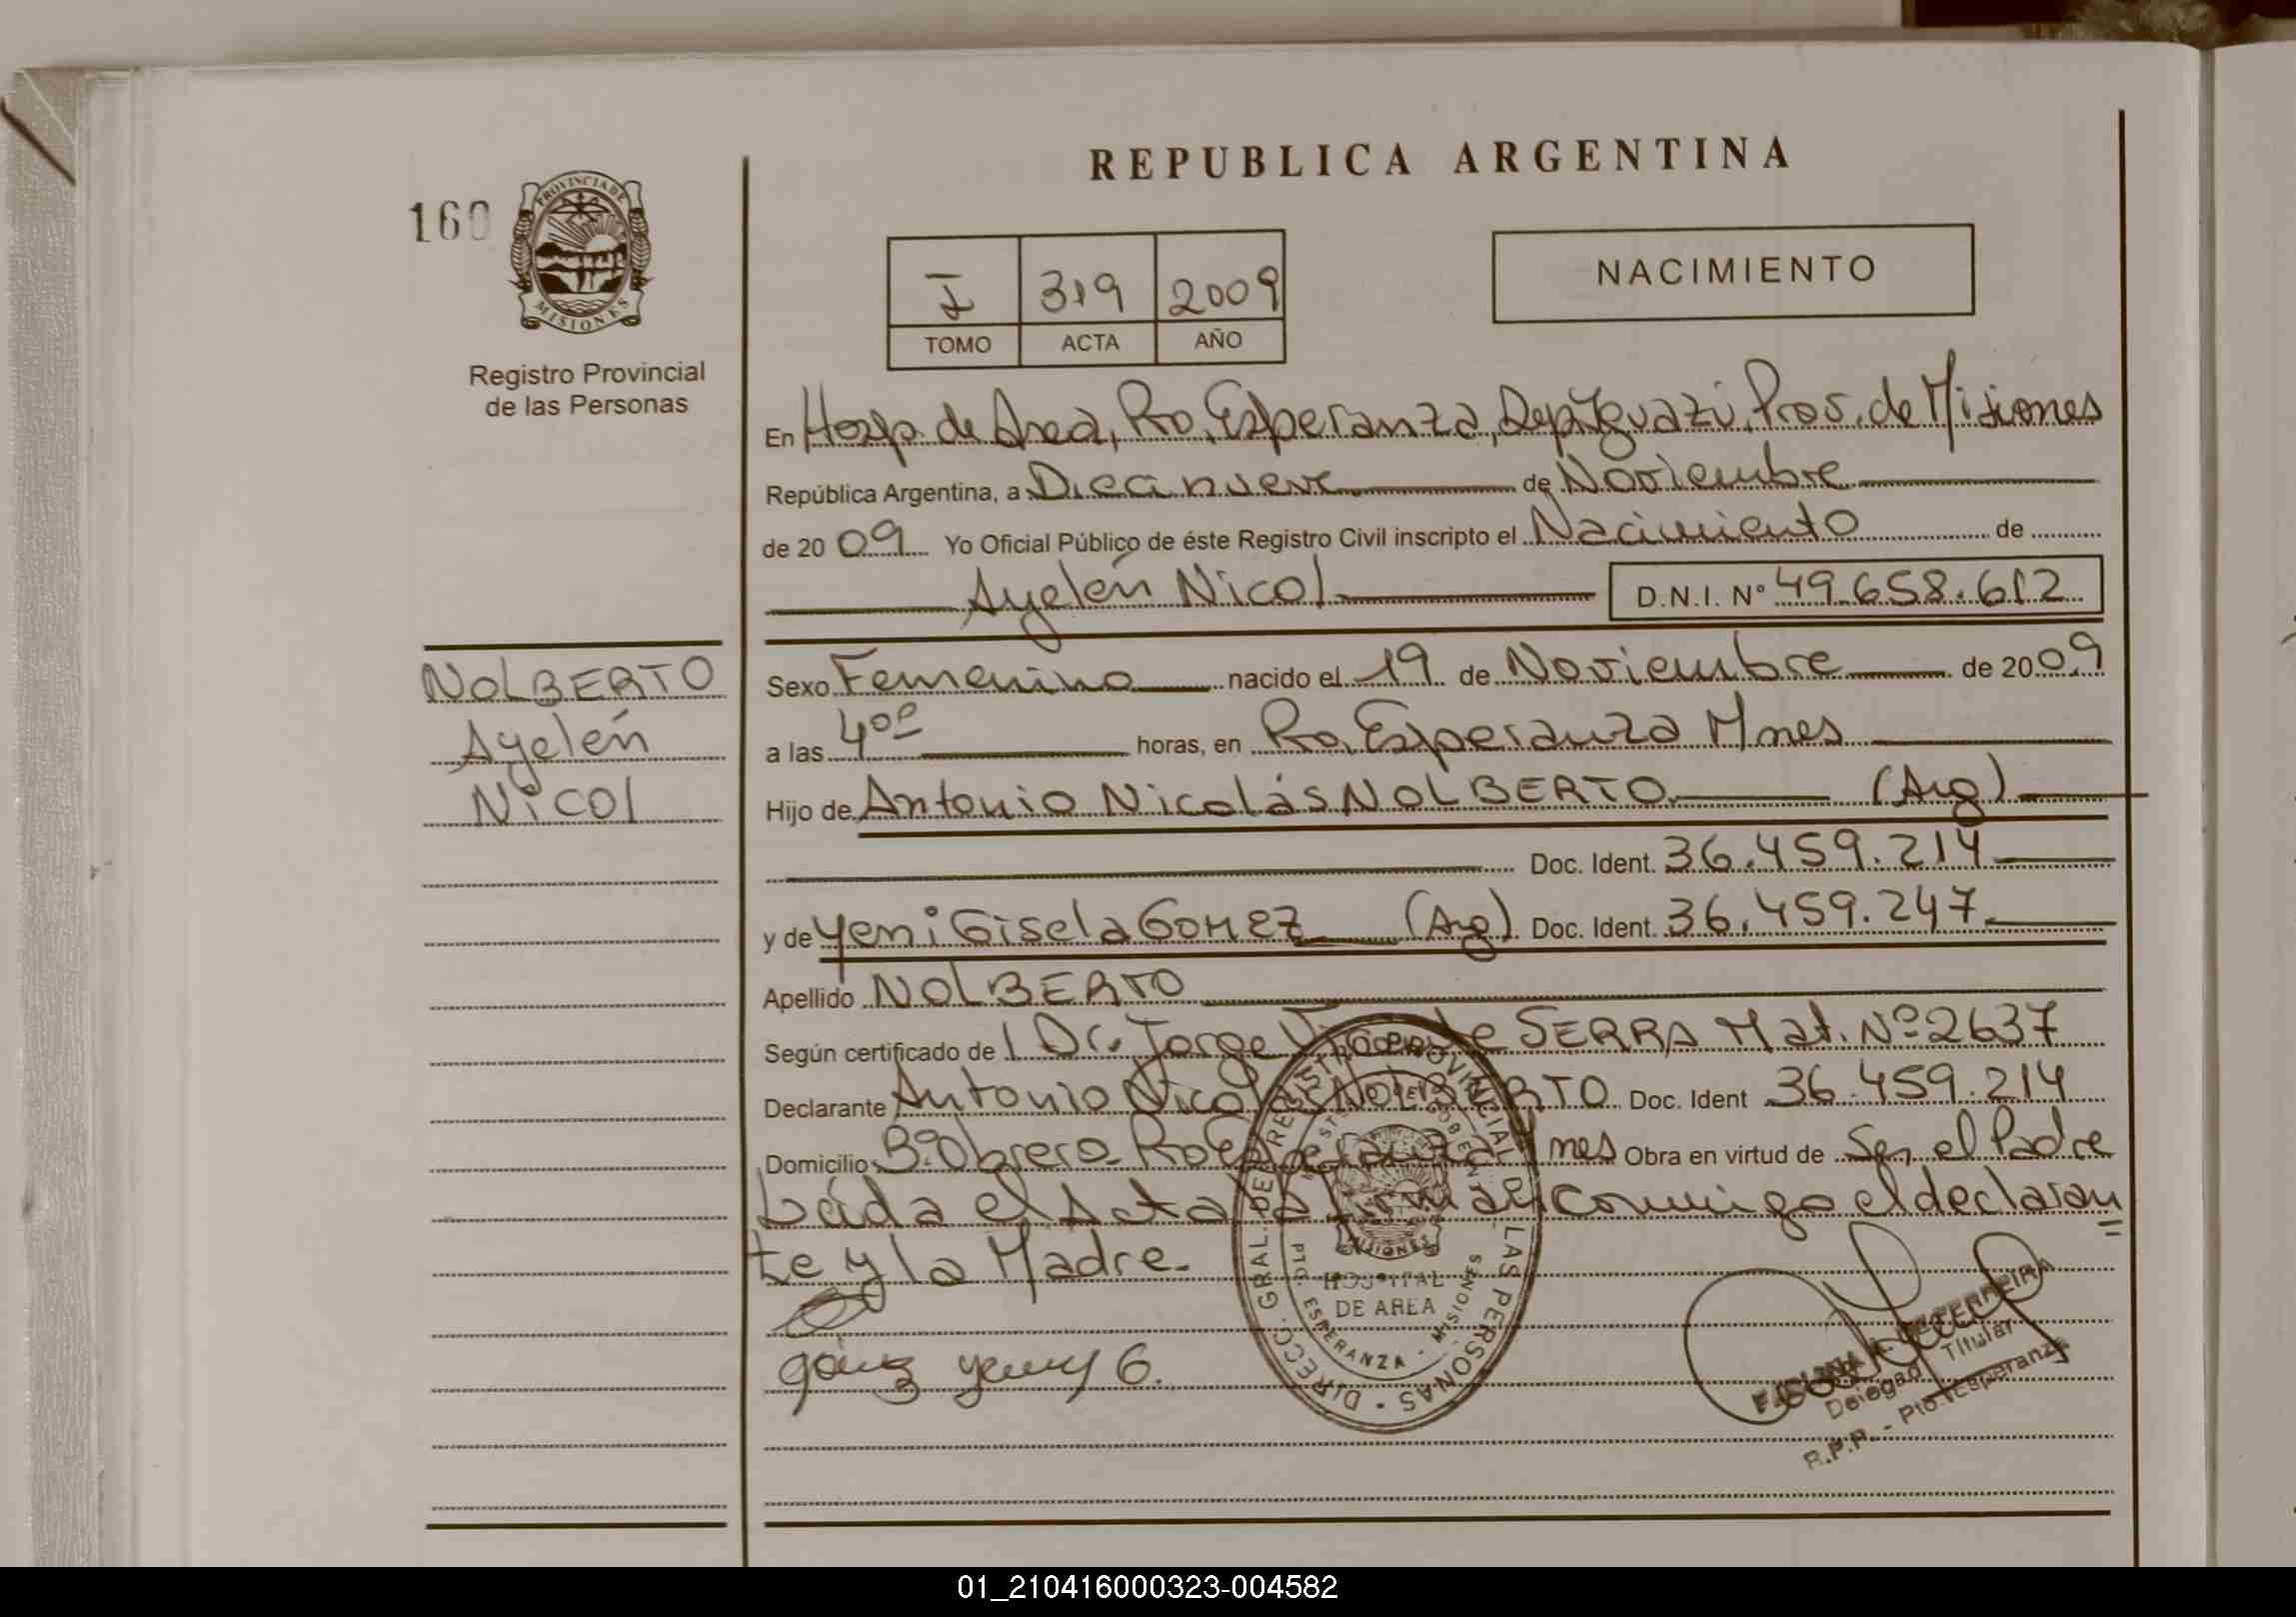 REPUBLICA ARGENTINA
160
PROVINCIA DE
MISIONES
Registro Provincial
de las Personas
I 319 2009
TOMO ACTA AÑO
NACIMIENTO
En Hosp. de Area, Pto. Esperanza, Dep. Iguazú, Prov. de Misiones
República Argentina, a Diecinueve de Noviembre
de 20 09 Yo Oficial Público de éste Registro Civil inscripto el Nacimiento de
Ayelén Nicol D.N.I. N° 49.658.612
NOLBERTO
Ayelén
Nicol
Sexo Femenino nacido el 19 de Noviembre de 20 09
a las 4 horas, en Pto. Esperanza Mnes
Hijo de Antonio Nicolás NOLBERTO (Arg)
Doc. Ident. 36.459.214
y de Yeni Gisela GOMEZ (Arg) Doc. Ident. 36.459.247
Apellido NOLBERTO
Según certificado del Dr. Jorge Vicente SERRA Mat. Nº 2637
Declarante Antonio Nicolás NOLBERTO Doc. Ident 36.459.214
Domicilio Bº Obrero Pto Esperanza Mnes Obra en virtud de Ser el Padre
Leída el Acta la firman conmigo el declaran
te y la Madre.
DIRECC. GRAL. DE REGISTRO PROVINCIAL DE LAS PERSONAS
MISIONES
HOSPITAL
DE AREA
PTO. ESPERANZA - MISIONES
yeny G.
FERREIRA
Titular
R.P.P. - Pto. Esperanza
01_210416000323-004582